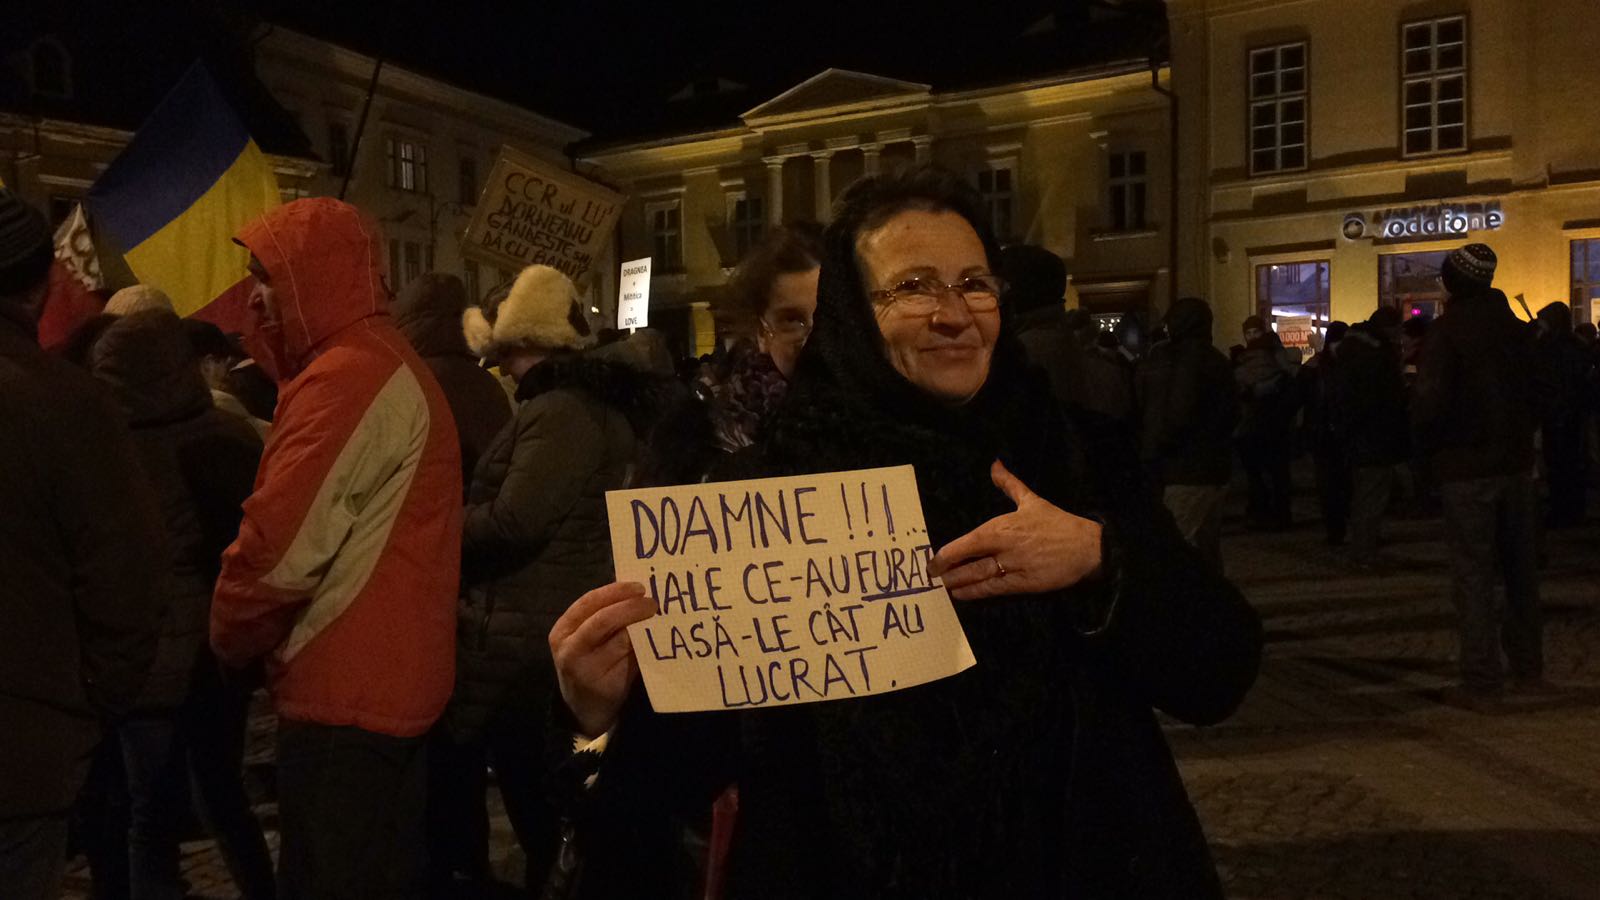 CCR ul LU'
DORNEANU
GÂNDEȘTE SAU
DĂ CU BANU'?
DRAGNEA
+
Mititica
=
LOVE
vodafone
DOAMNE !!!...
IA-LE CE-AU FURAT
LASĂ-LE CÂT AU
LUCRAT.